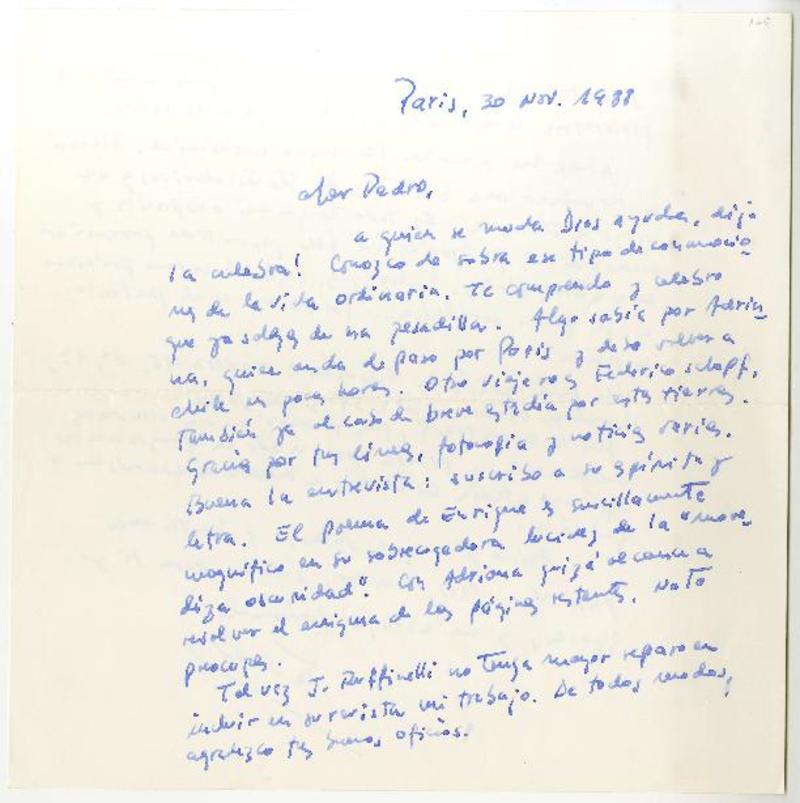 Paris, 30 Nov. 1988
Pedro,
a quien se muda Dios ayuda, dijo
la culebra! Conozco de sobra ese tipo de conmocio-
nes de la vida ordinaria. Te comprendo y celebro
que ya salgas de esa pesadilla. Algo sabía por Adria-
na, quien anda de paso por París y debe volver a
Chile en pocas horas. Otro viajero es Federico Schopf,
también ya al cabo de breve estadía por estas tierras.
Gracias por tus líneas, fotografía y noticias varias.
Buena la entrevista: suscribo a su espíritu y
letra. El poema de Enrique es sencillamente
magnífico en su sobrecogedora lucidez de la "move-
diza oscuridad". Con Adriana quizá alcance a
resolver el enigma de las páginas restantes. No te
preocupes.
Tal vez J. Ruffinelli no tenga mayor reparo en
incluir en su revista mi trabajo. De todos modos,
agradezco tus buenos oficios.